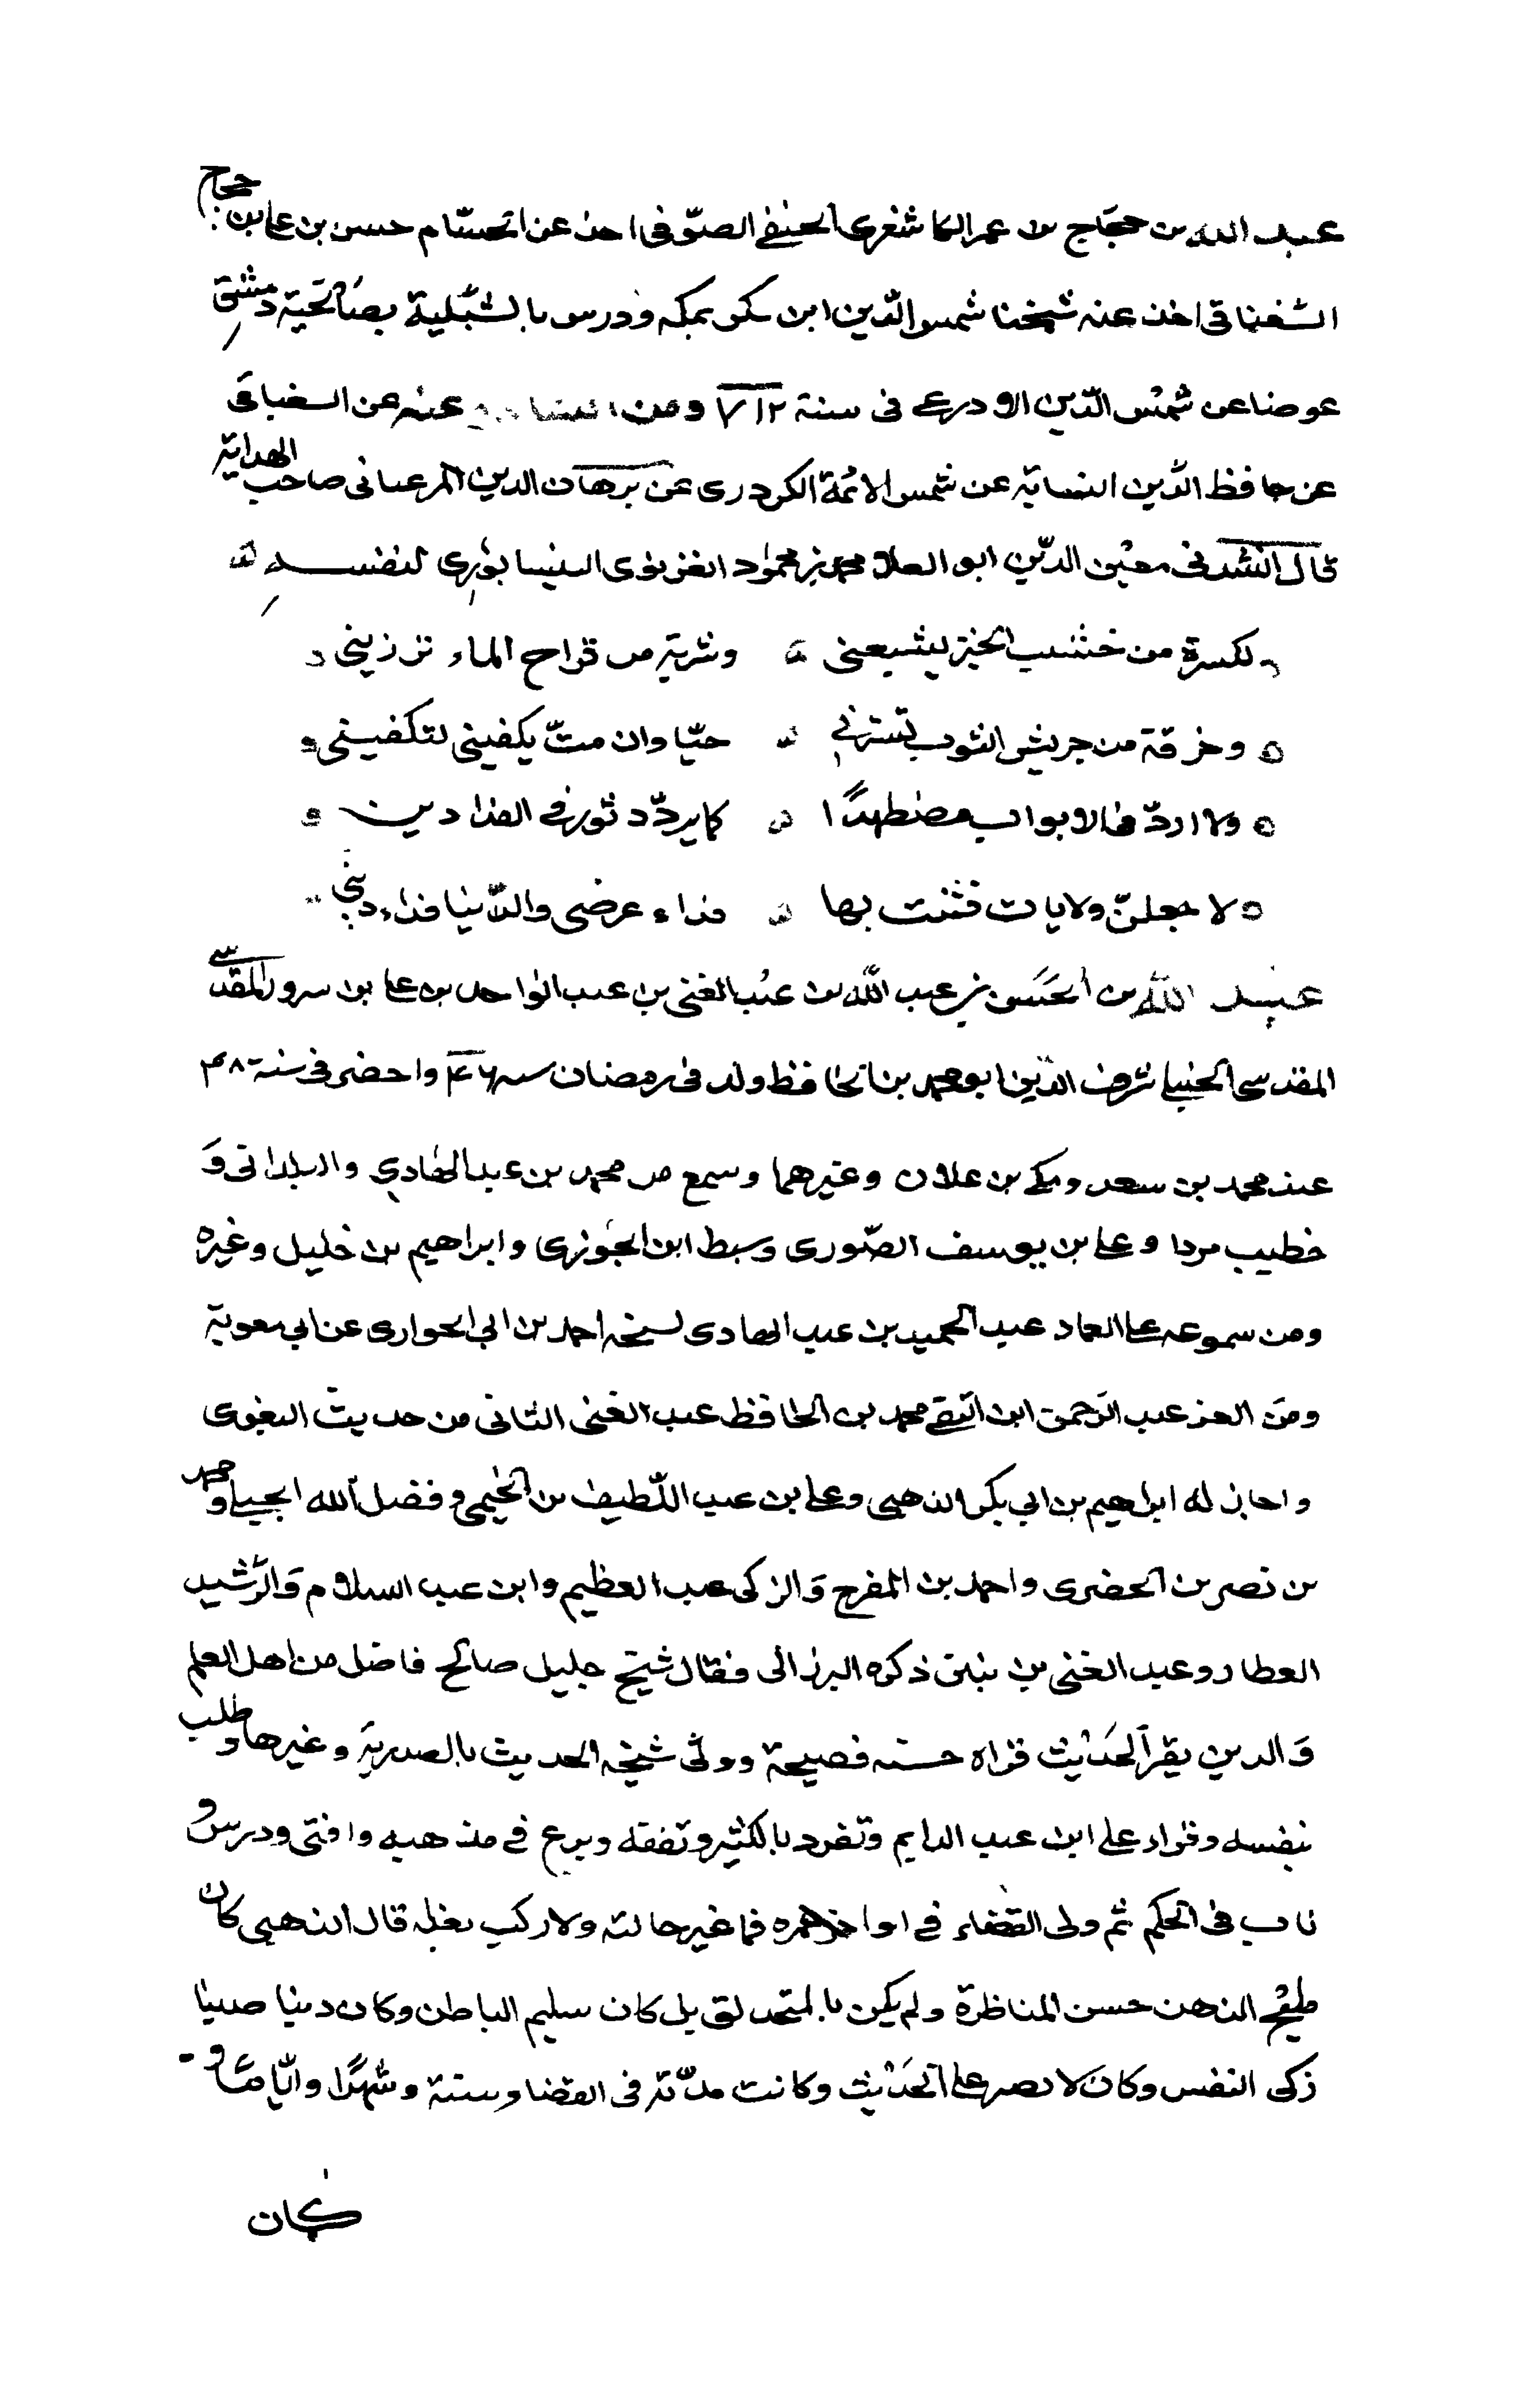 عبد الله بن حجاج بن عمر الكاشغرى الحنفى الصوّفى اخذ عن الحسّام حسين بن على بن حجاج
السغناقى اخذ عنه شيخنا شمس الدّين ابن سكر بمكه ودرس بالشبّلية بصالحيّة دمشق
عوضا عن شمس الدّين الاودرعى فى سنة ٧١٢ ومن عنه عن السغناقى
عن حافظ الدّين عن شمس الائمّة الكردرى عن برهان الدين المرغينانى صاحب الهداية
قال انشدنى معين الدّين ابو العلا محمد بن محمود الغزنوى النيسابورى لنفسه
لكسرة من خشيب الخبز تشبعنى وشربة من قراح الماء ترزينى
وخرقة من جريش الثوب تسترنى حيّا وان متّ يكفينى لتكفينى
ولا اردّد فى الابواب مضطهدًا كما يردّد ثور فى الفدادين
لا جعلنّ ولايات فتنت بها فداء عرضى والدّنيا فداء دينى
عبد الله بن الحسن بن عبد الله بن عبد الغنى بن عبد الواحد بن على بن سرور المقدسى
المقدسى الحنبلى شرف الدّين ابو محمد بن الحافظ ولد فى رمضان سنه ٤٦ واحضر فى سنة ٤٨
عند محمد بن سعد ومكى بن علان وغيرهما وسمع من محمد بن عبد الهادي والبلدانى و
خطيب مردا وعلى بن يوسف الصّورى وسبط ابن الجوزى وابراهيم بن خليل وغيره
ومن سموعه على العماد عبد الحميد بن عبد الهادى نسخه احمد بن ابي الحوارى عن ابي معوية
ومن العز عبد الرّحمن ابن التقى محمد بن الحافظ عبد الغنى الثانى من حديث البغوى
واجاز له ابراهيم بن ابي بكر الذهبى وعلى بن عبد اللّطيف بن الخيمى وفضل الله الجيلى ومحمد
بن نصر بن الحضرى واحمد بن المفرج والزكى عبد العظيم وابن عبد السلام والرّشيد
العطار وعبد الغنى بن بنين ذكره البرزالى فقال شيخ جليل صالح فاضل من اهل العلم
والدين يقرأ الحديث قراة حسنه فصيحة وولى شيخه الحديث بالصدرية وغيرها وطلب
بنفسه وقراء على ابن عبد الدايم وتفرد بالكثير وتفقه وبرع فى مذهبه وافتى ودرس و
ناب فى الحكم ثم ولى القضاء فى اواخر عمره فما غير حالته ولا ركب بغله قال الذهبى كان
مليح الذهن حسن المناظرة ولم يكن بالمتحذلق بل كان سليم الباطن وكان دينا صينا
زكى النفس وكان لا يصبر على الحديث وكانت مدّته فى القضاء سنة وشهرًا وايّامًا و
كان